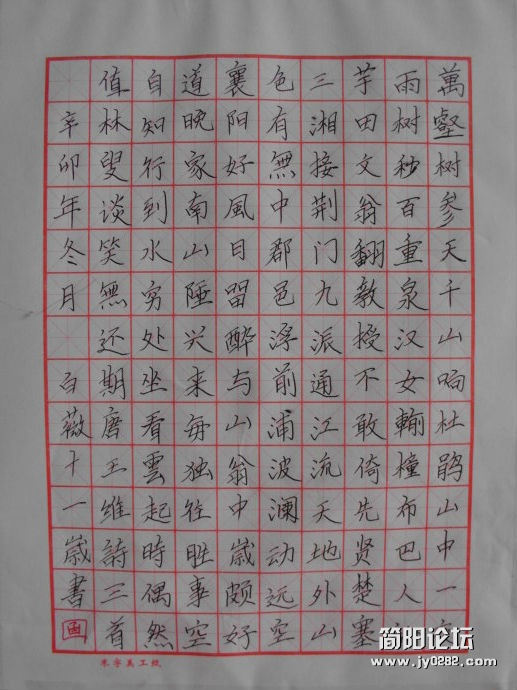 萬壑树参天千山响杜鹃山中一
雨树秒百重泉汉女輸橦布巴人
芋田文翁翻教授不敢倚先贤楚塞
三湘接荆门九派通江流天地外山
色有無中郡邑浮前浦波澜动远空
襄阳好風日留醉与山翁中歲颇好
道晚家南山陲兴来每独往胜事空
自知行到水穷处坐看雲起時偶然
值林叟谈笑無还期唐王維詩三首
辛卯年冬月 白薇十一歲書
米字美工纸
简阳论坛
www.jy0282.com